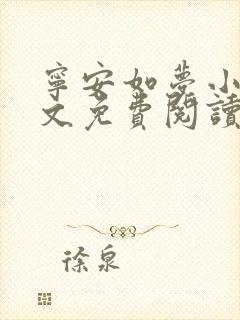 寧安如夢小
文免費閱讀
徐泉